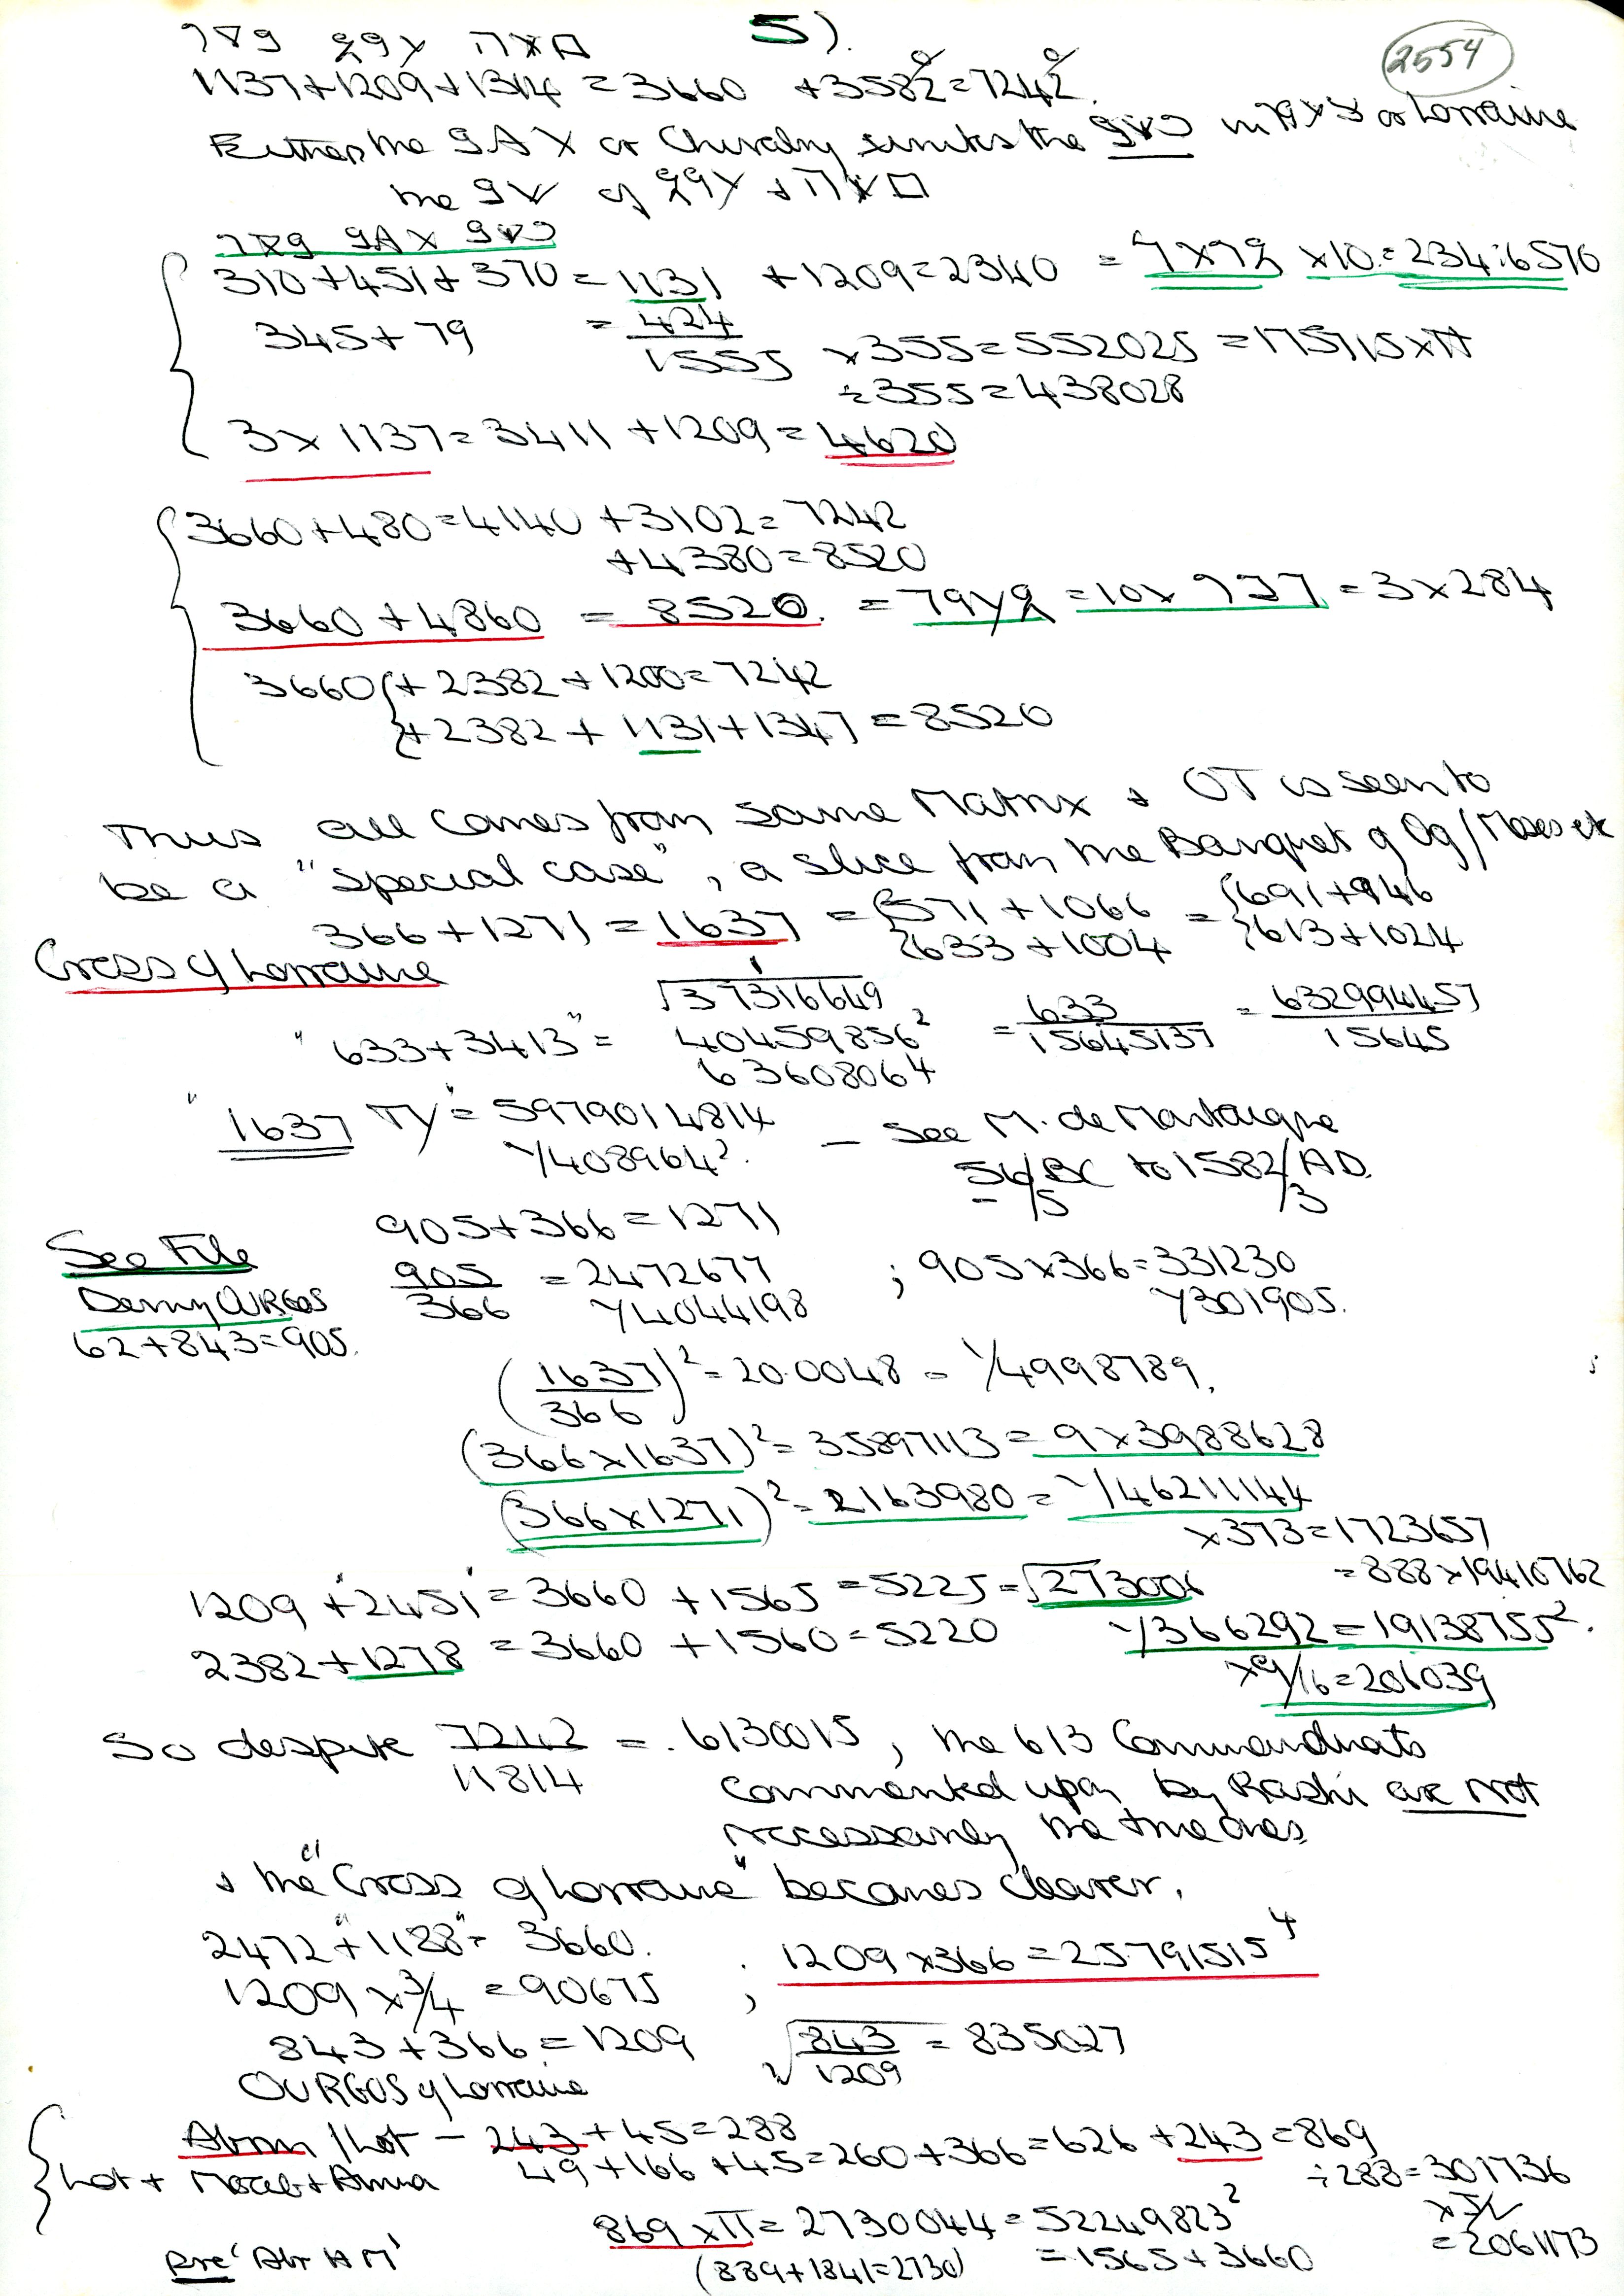 5).
2554
1137+1209+1314 = 3660 +3582=7242
Either the or Chivalry unites the in or Lorraine
the of +
310+451+370 = 1131 +1209=2340 = ×10 = 234:6570
345+79 = 424
1555 ×355=552025 = 175715×π
÷355=438028
3×1137=3411 +1209=4620
3660+480=4140 +3102=7242
+4380=8520
3660+4860 = 8520. = =10× = 3×284
3660 {+2382+1200=7242
{+2382+1131+1347=8520
Thus all comes from same Matrix & OT is seen to
be a "special case", a slice from the Banquet of Og/Moses etc
366+1271=1637 = {571+1066 = {691+946
{633+1004 {613+1024
Cross of Lorraine
"633+3413" = √37316649 = 633/15645137 = 632994457/15645
40459856²
63608064
"1637 TY" = 5979014814 — see M. de Montaigne
1/408964². 56/BC to 1582/AD.
– /5 /3
905+366=1271
See File
Demy OURGOS
62+843=905.
905/366 = 2472677 ; 905×366=331230
1/4044198 1/301905.
(1637/366)² = 20.0048 = 1/4998789.
(366×1637)² = 35897113 = 9×3988628
(366×1271)² = 2163980 = 1/46211144
×373=1723657
=888×19410762
1209+2451=3660 +1565=5225=√273006
2382+1278=3660 +1560=5220 1/366292=19138755².
×9/16=206039
So despite 7242/11814 = .6130015, the 613 Commandments
commented upon by Rashi are not
necessarily the true ones
& the "Cross of Lorraine" becomes clearer.
2472+"1188"= 3660.
1209×3/4=90675 ; 1209×366=25791515⁴
843+366=1209 √843/1209 = 835027
OURGOS of Lorraine
Abram/Lot – 243+45=288
Lot + Moab + Amma 49+166+45=260+366=626+243=869
÷288=301736
×
=2061173
869×π=2730044=52249823²
pre 'AbrAM' (889+1841=2730) =1565+3660